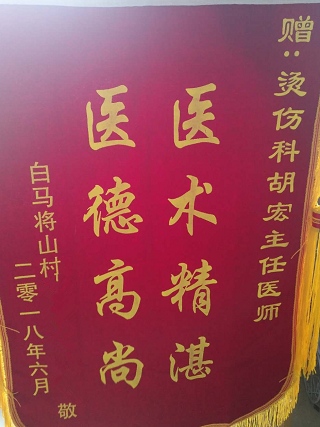 赠：烫伤科胡宏主任医师
医术精湛
医德高尚
白马将山村
二零一八年六月
敬